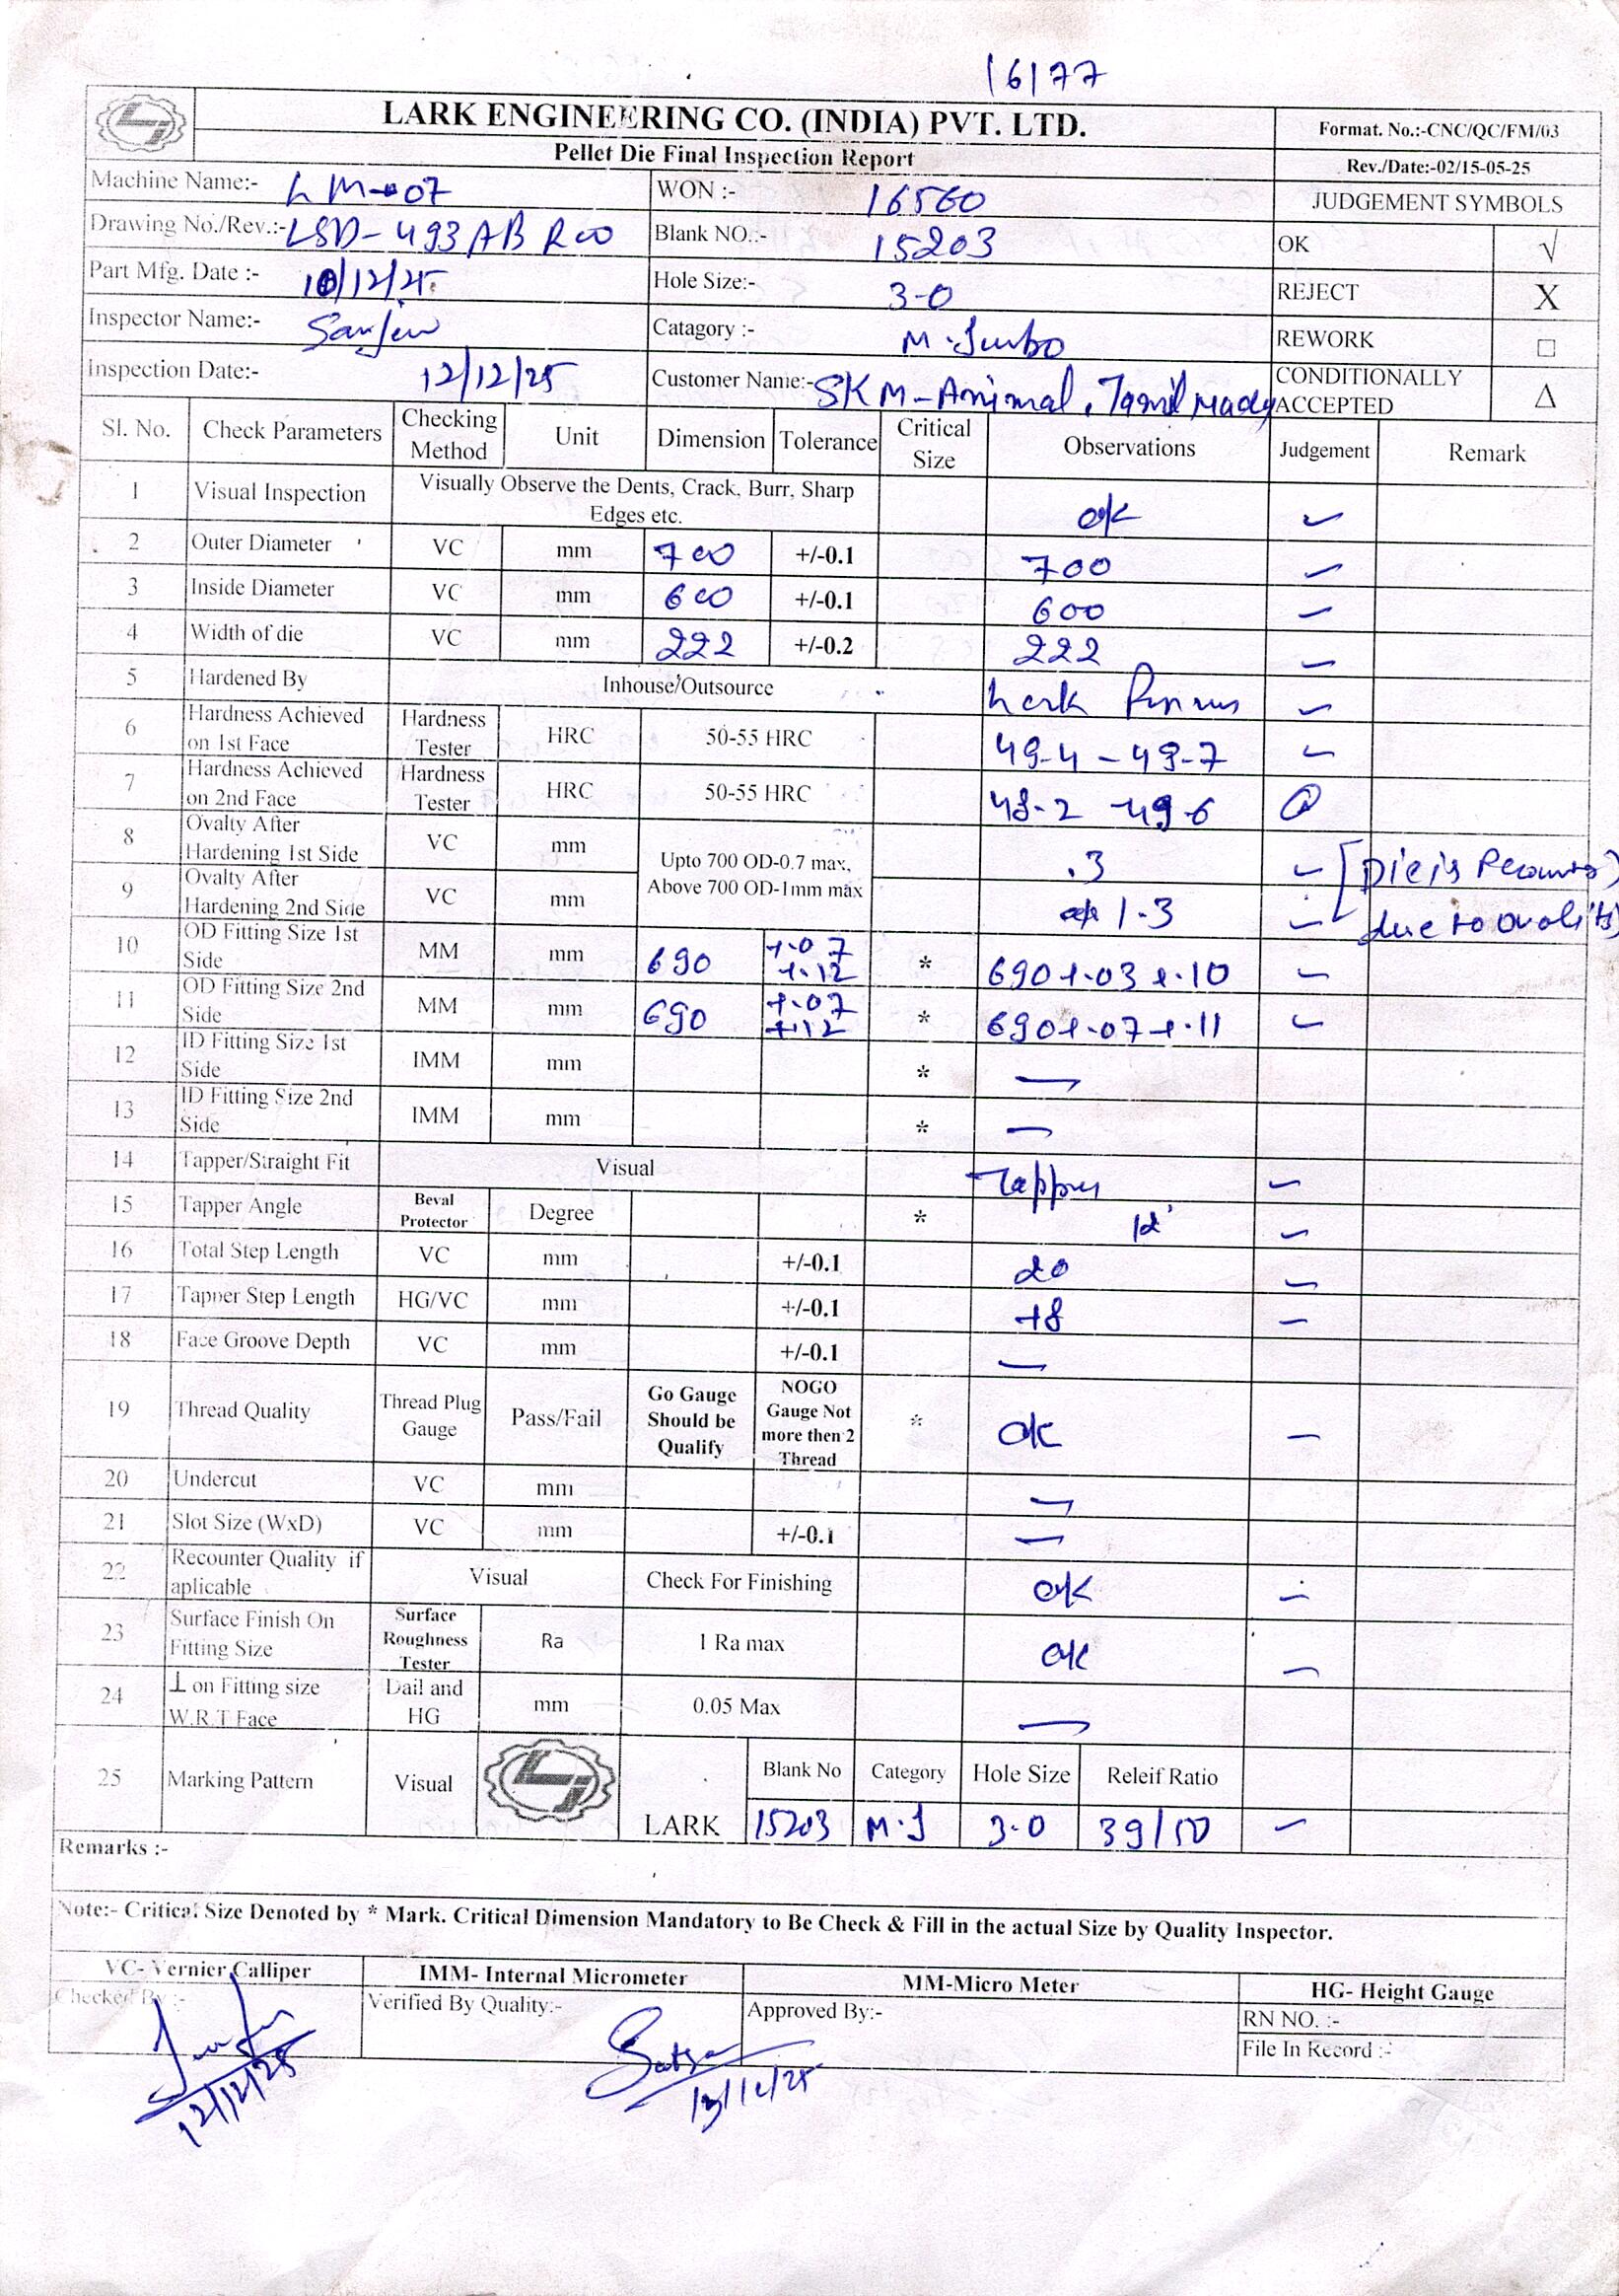 16177
LARK ENGINEERING CO. (INDIA) PVT. LTD.
Format. No.:-CNC/QC/FM/03
Pellet Die Final Inspection Report
Rev./Date:-02/15-05-25
Machine Name:- LM-07 WON :- 16560 JUDGEMENT SYMBOLS
Drawing No./Rev.:- LSD-493AB R00 Blank NO.:- 15203 OK √
Part Mfg. Date :- 10/12/25 Hole Size:- 3-0 REJECT X
Inspector Name:- Sanjeev Catagory :- M.Jumbo REWORK □
Inspection Date:- 12/12/25 Customer Name:- SKM-Animal, Tamil Nadu CONDITIONALLY ACCEPTED Δ
Sl. No. Check Parameters Checking Method Unit Dimension Tolerance Critical Size Observations Judgement Remark
1 Visual Inspection Visually Observe the Dents, Crack, Burr, Sharp Edges etc. ok ✓
2 Outer Diameter VC mm 700 +/-0.1 700 ✓
3 Inside Diameter VC mm 600 +/-0.1 600 ✓
4 Width of die VC mm 222 +/-0.2 222 ✓
5 Hardened By Inhouse/Outsource Lark ✓
6 Hardness Achieved on 1st Face Hardness Tester HRC 50-55 HRC 49-4 - 49-7 ✓
7 Hardness Achieved on 2nd Face Hardness Tester HRC 50-55 HRC 48-2 - 49-6
8 Ovalty After Hardening 1st Side VC mm Upto 700 OD-0.7 max, Above 700 OD-1mm max .3 ✓ Die is Recounter
9 Ovalty After Hardening 2nd Side VC mm 1-3 ✓ due to ovality
10 OD Fitting Size 1st Side MM mm 690 +.07 +.12 * 690+.03 +.10 ✓
11 OD Fitting Size 2nd Side MM mm 690 +.07 +.12 * 690+.07 +.11 ✓
12 ID Fitting Size 1st Side IMM mm * —
13 ID Fitting Size 2nd Side IMM mm * —
14 Tapper/Straight Fit Visual Tapper ✓
15 Tapper Angle Beval Protector Degree * ✓
16 Total Step Length VC mm +/-0.1 20 ✓
17 Tapper Step Length HG/VC mm +/-0.1 18 ✓
18 Face Groove Depth VC mm +/-0.1 —
19 Thread Quality Thread Plug Gauge Pass/Fail Go Gauge Should be Qualify NOGO Gauge Not more then 2 Thread * ok ✓
20 Undercut VC mm —
21 Slot Size (WxD) VC mm +/-0.1 —
22 Recounter Quality if aplicable Visual Check For Finishing ok ✓
23 Surface Finish On Fitting Size Surface Roughness Tester Ra 1 Ra max ok ✓
24 ⊥ on Fitting size W.R.T Face Dail and HG mm 0.05 Max —
25 Marking Pattern Visual LARK Blank No Category Hole Size Releif Ratio
15203 M.J 3-0 39/50 ✓
Remarks :-
Note:- Critical Size Denoted by * Mark. Critical Dimension Mandatory to Be Check & Fill in the actual Size by Quality Inspector.
VC- Vernier Calliper IMM- Internal Micrometer MM-Micro Meter HG- Height Gauge
Checked By :- Verified By Quality:- Approved By:- RN NO. :-
File In Record :-
12/12/25 13/12/25